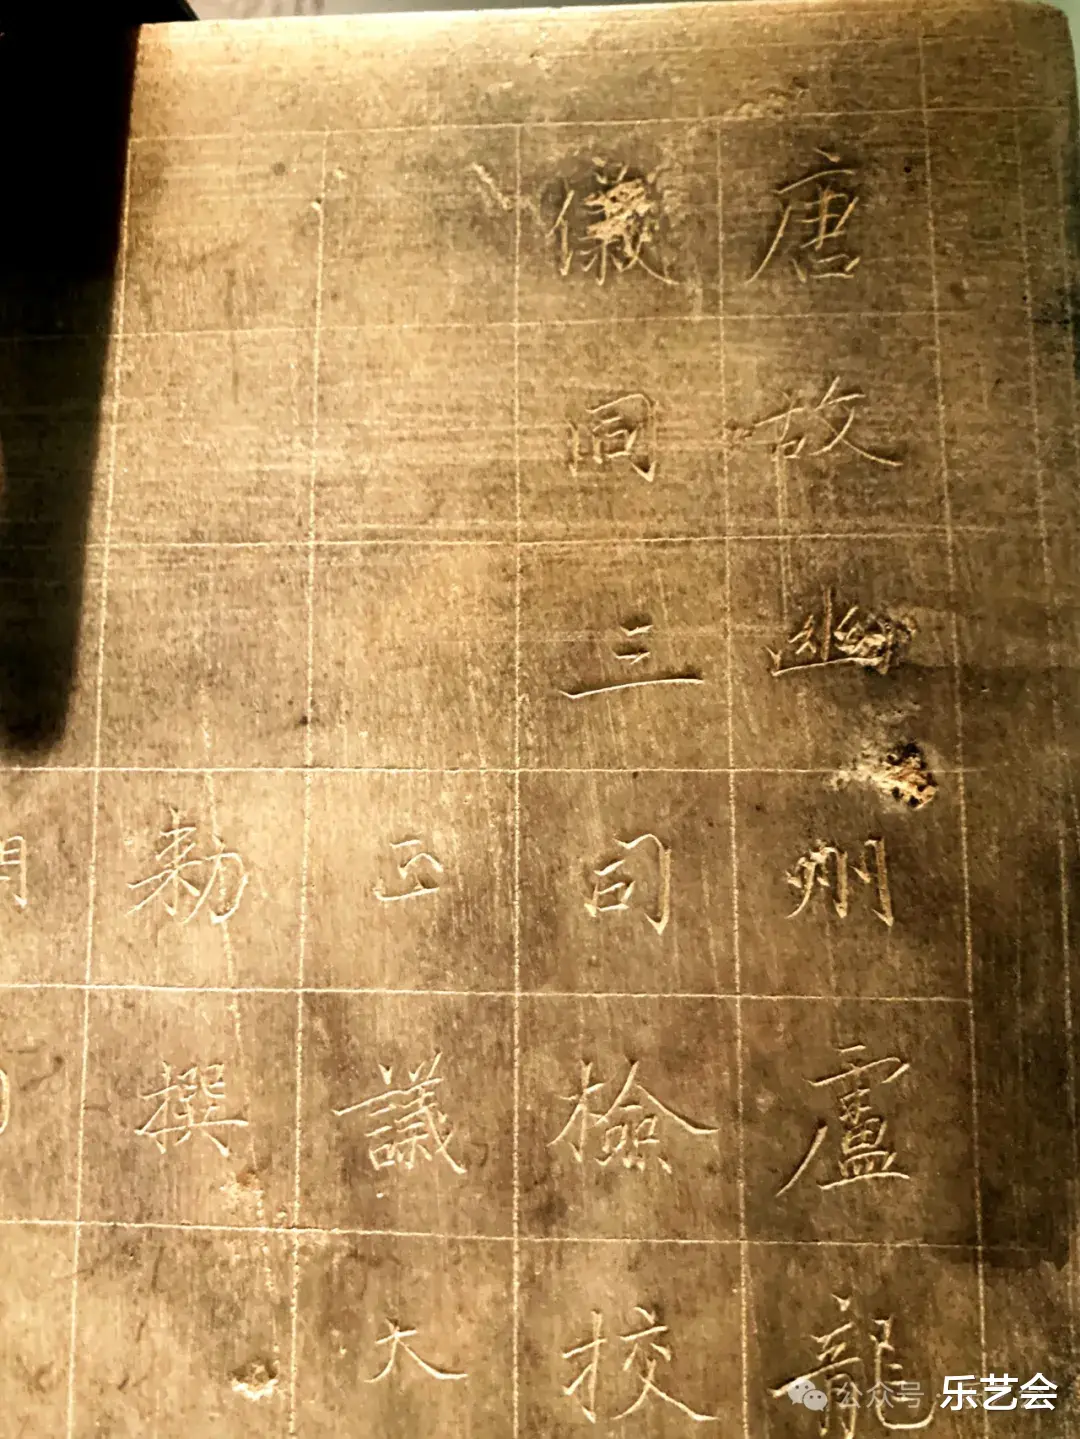 唐故幽州盧龍
儀同三司檢校
正議大
勑撰
公众号·乐艺会